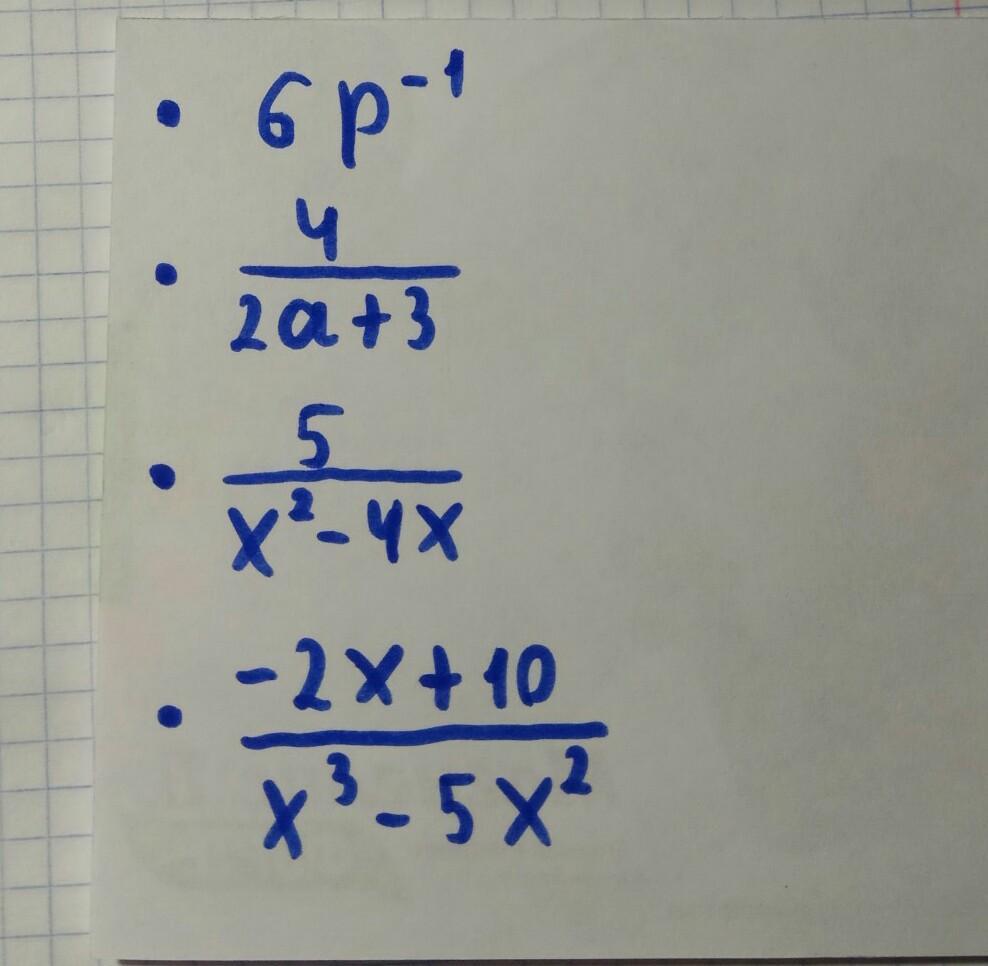 • 6p⁻¹
• 4
2a+3
• 5
x²-4x
• -2x+10
x³-5x²